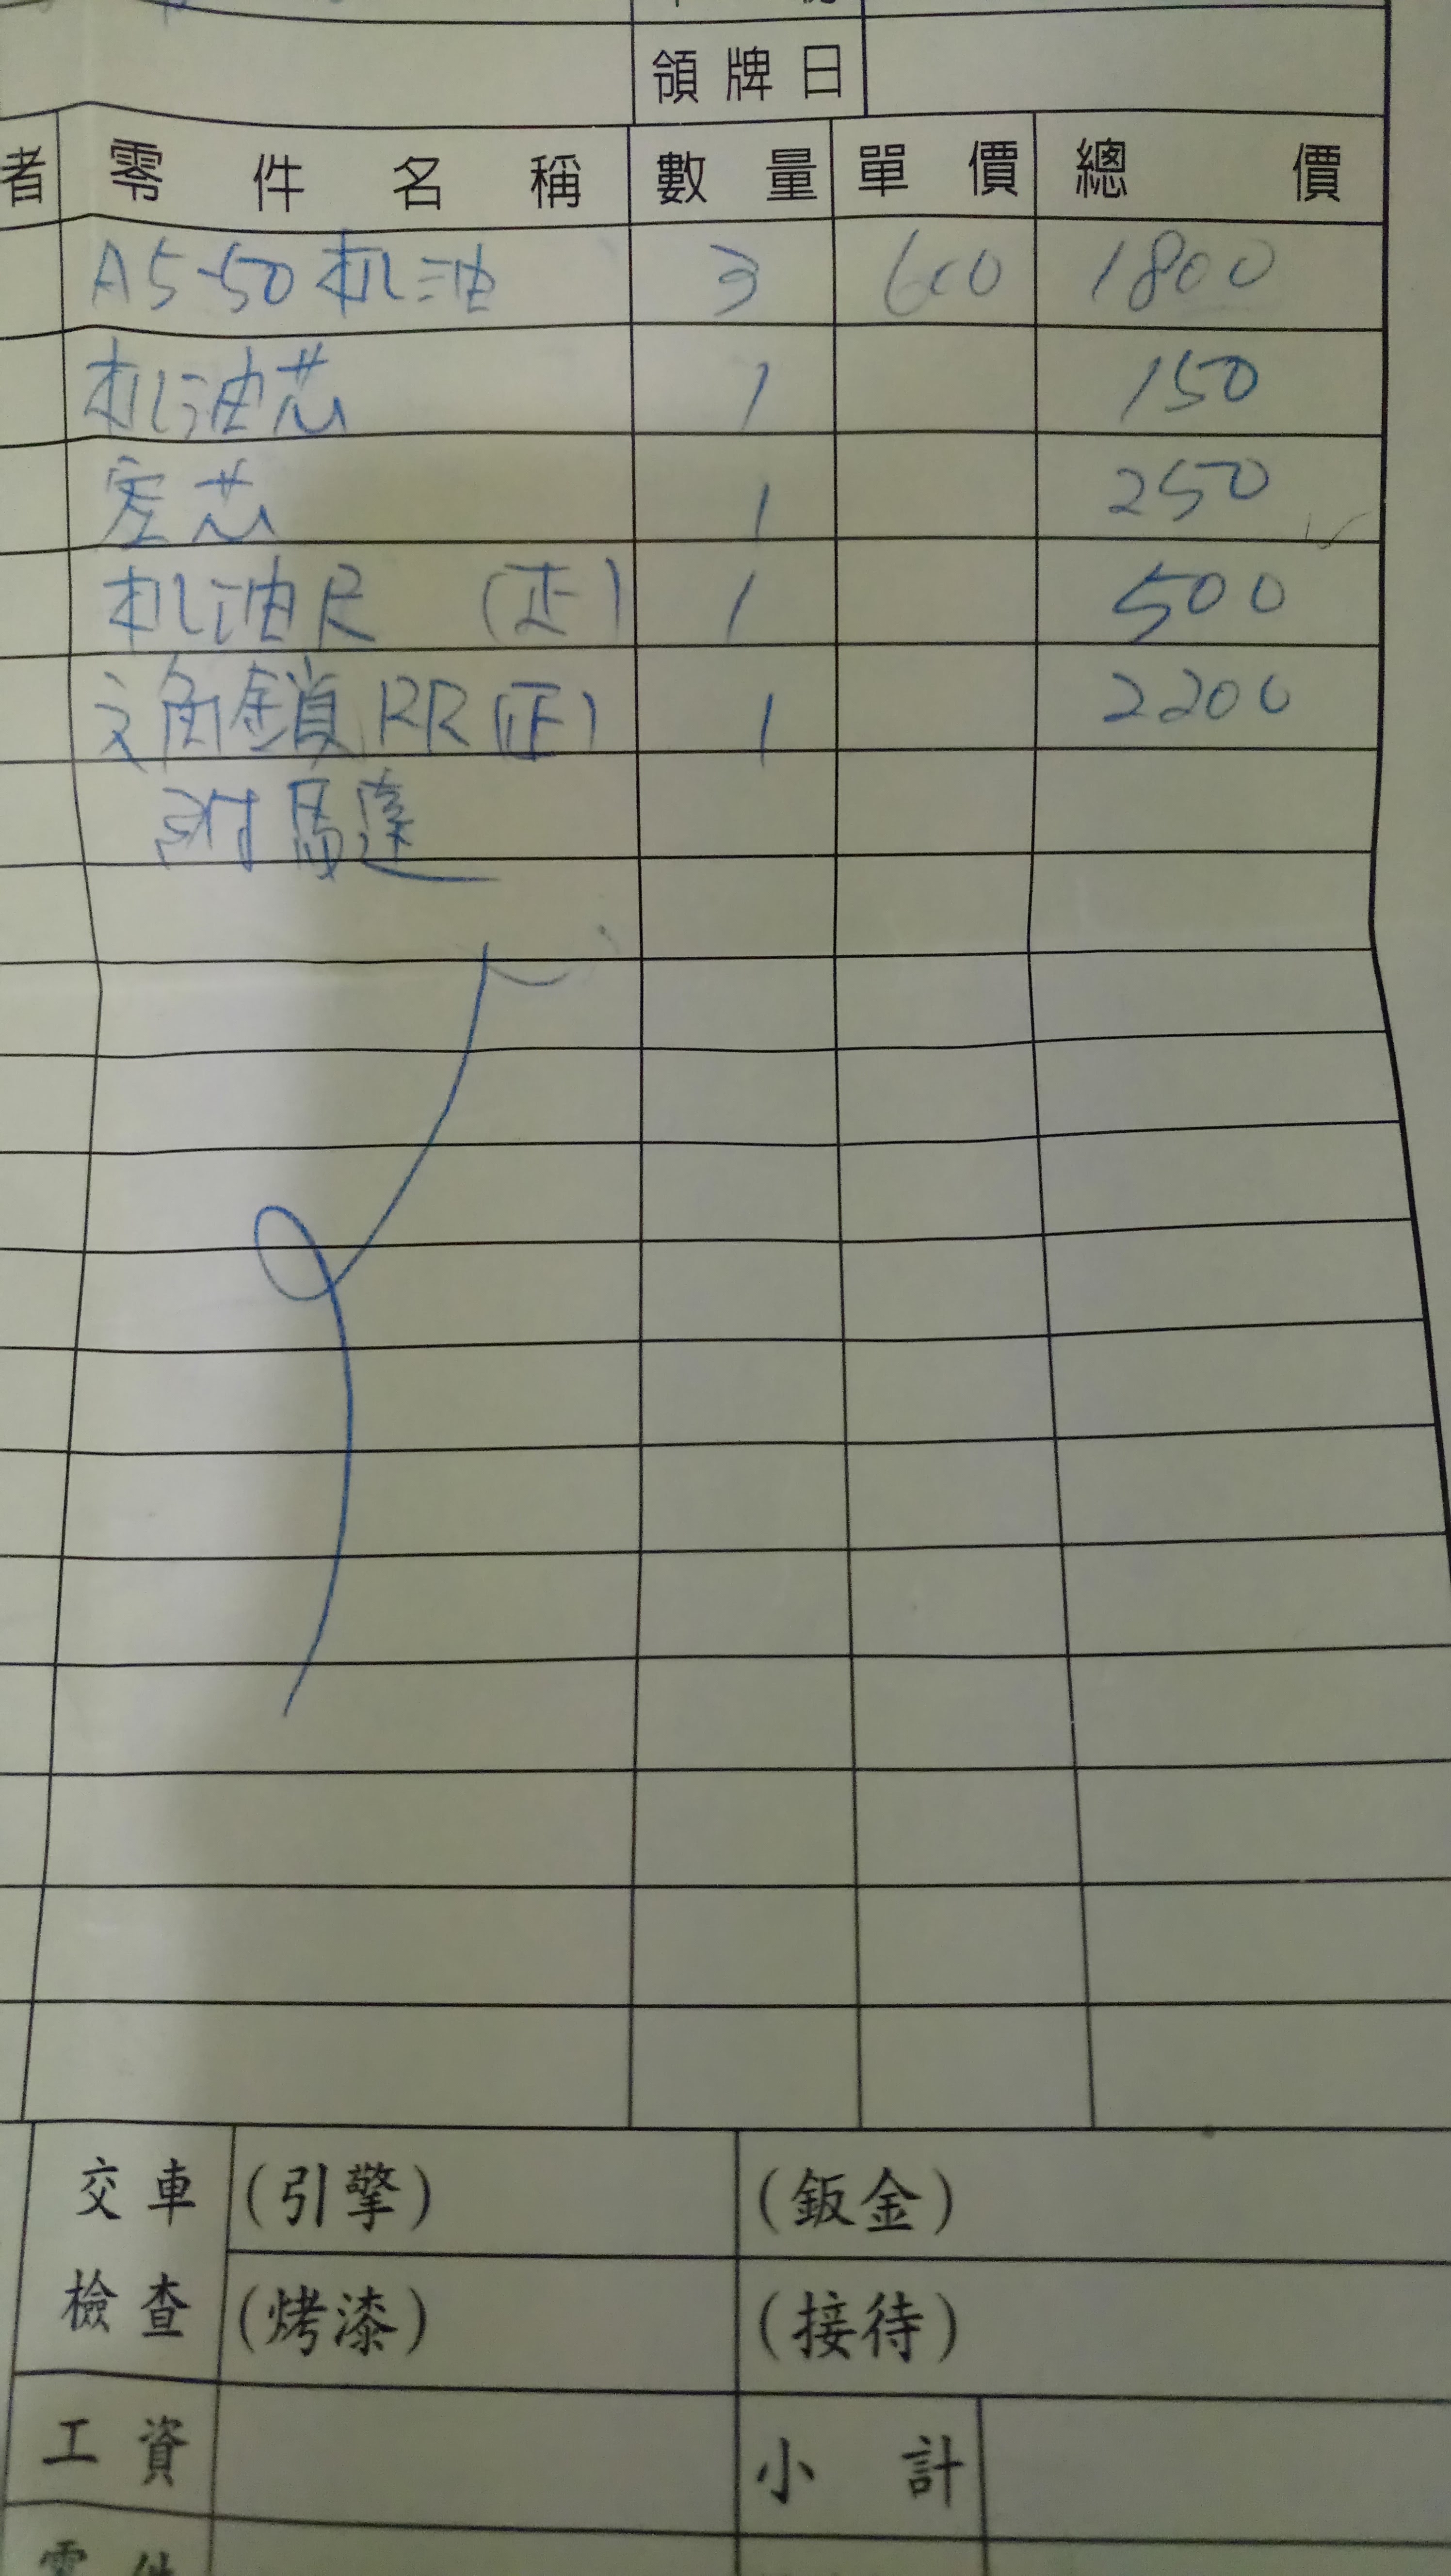 領牌日
者 零件名稱 數量 單價 總價
A5-50机油 3 600 1800
机油芯 1 150
空芯 1 250
机油尺 (正) 1 500
角鎖RR(正) 1 2200
附馬達
交車檢查 (引擎) (鈑金)
(烤漆) (接待)
工資 小計
零件